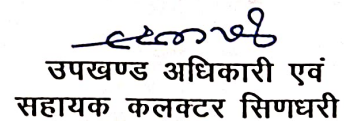 उपखण्ड अधिकारी एवं
सहायक कलक्टर सिणधरी